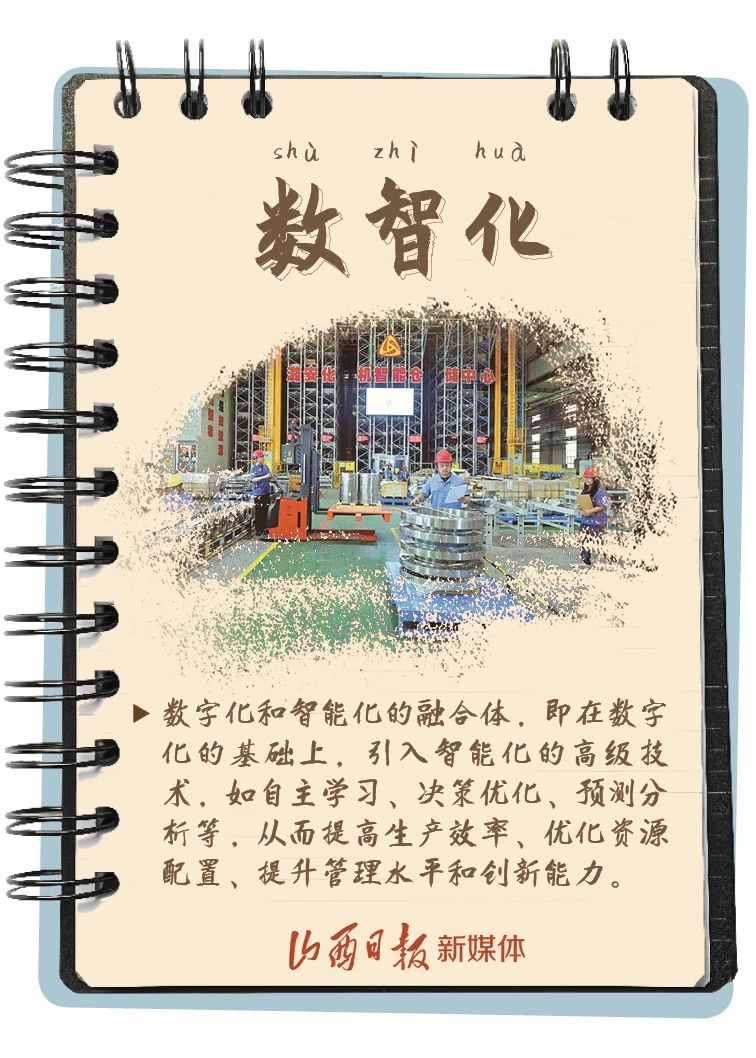 shù zhì huà
数智化
潞安化机智能仓储中心
数字化和智能化的融合体，即在数字
化的基础上，引入智能化的高级技
术，如自主学习、决策优化、预测分
析等，从而提高生产效率、优化资源
配置、提升管理水平和创新能力。
山西日报新媒体